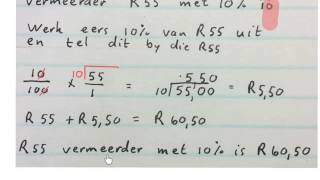 vermeerder R55 met 10% 10
Werk eers 10% van R55 uit
en tel dit by die R55
10/100 × 10 55/1 = 5,50 10 55,00 = R5,50
R55 + R5,50 = R60,50
R55 vermeerder met 10% is R60,50